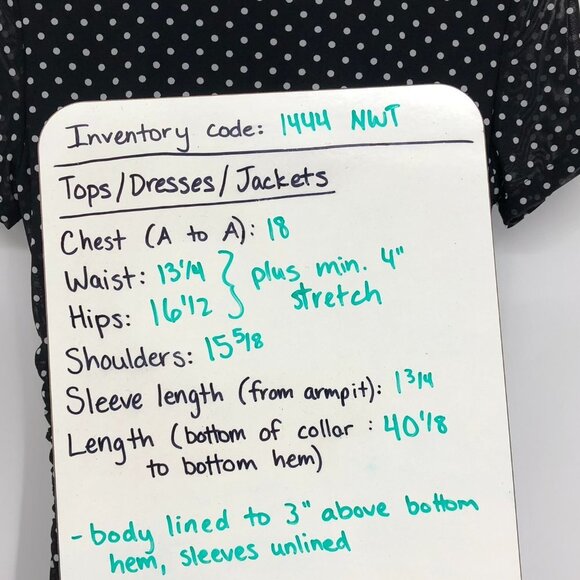 Inventory code: 1444 NWT
Tops/Dresses/Jackets
Chest (A to A): 18
Waist: 13 1/4 } plus min. 4"
Hips: 16 1/2 } stretch
Shoulders: 15 5/8
Sleeve length (from armpit): 1 3/4
Length (bottom of collar : 40 1/8
to bottom hem)
- body lined to 3" above bottom
hem, sleeves unlined